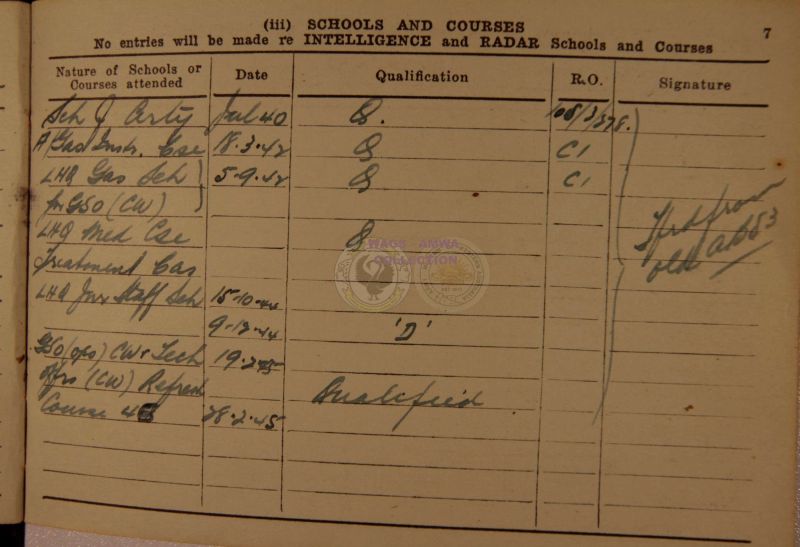 (iii) SCHOOLS AND COURSES 7
No entries will be made re INTELLIGENCE and RADAR Schools and Courses
Nature of Schools or Courses attended Date Qualification R.O. Signature
Sch of Arty Jul 40 Q. 108/3/378.
A/Gas Instr. Cse 18.3.42 Q C1
LHQ Gas Sch 5.9.42 Q C1
for GSO (CW)
LHQ Med Cse Q
Treatment Gas
LHQ Jnr Staff Sch 15.10.44
9.12.44 'D'
GSO (ops) CW & Tech 19.2.45
Offrs (CW) Refresh
Course 28.2.45 Qualified
Tfrd from
old AB83
WAGS - AMWA
COLLECTION